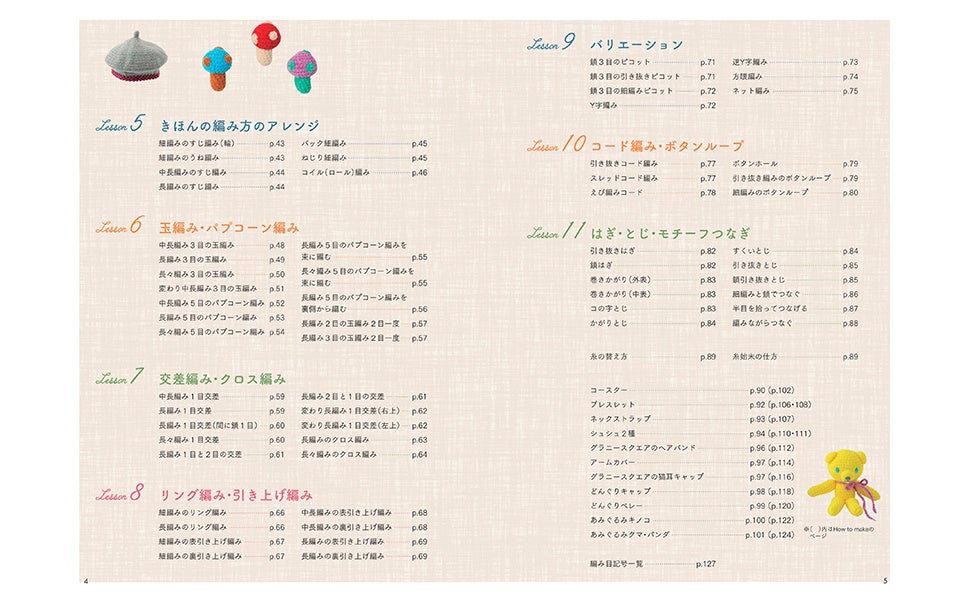 Lesson 5 きほんの編み方のアレンジ
細編みのすじ編み（輪） p.43
細編みのうね編み p.43
中長編みのすじ編み p.44
長編みのすじ編み p.44
バック細編み p.45
ねじり細編み p.45
コイル（ロール）編み p.46
Lesson 6 玉編み・パプコーン編み
中長編み３目の玉編み p.48
長編み３目の玉編み p.49
長々編み３目の玉編み p.50
変わり中長編み３目の玉編み p.51
中長編み５目のパプコーン編み p.52
長編み５目のパプコーン編み p.53
長々編み５目のパプコーン編み p.54
長編み５目のパプコーン編みを
束に編む p.55
長々編み５目のパプコーン編みを
束に編む p.55
長編み５目のパプコーン編みを
裏側から編む p.56
長編み２目の玉編み２目一度 p.57
長編み３目の玉編み２目一度 p.57
Lesson 7 交差編み・クロス編み
中長編み１目交差 p.59
長編み１目交差 p.59
長編み１目交差（間に鎖１目） p.60
長々編み１目交差 p.60
長編み１目と２目の交差 p.61
長編み２目と１目の交差 p.61
変わり長編み１目交差（右上） p.62
変わり長編み１目交差（左上） p.62
長編みのクロス編み p.63
長々編みのクロス編み p.64
Lesson 8 リング編み・引き上げ編み
細編みのリング編み p.66
長編みのリング編み p.66
細編みの表引き上げ編み p.67
細編みの裏引き上げ編み p.67
中長編みの表引き上げ編み p.68
中長編みの裏引き上げ編み p.68
長編みの表引き上げ編み p.69
長編みの裏引き上げ編み p.69
4
Lesson 9 バリエーション
鎖３目のピコット p.71
鎖３目の引き抜きピコット p.71
鎖３目の細編みピコット p.72
Y字編み p.72
逆Y字編み p.73
方眼編み p.74
ネット編み p.75
Lesson 10 コード編み・ボタンループ
引き抜きコード編み p.77
スレッドコード編み p.77
えび編みコード p.78
ボタンホール p.79
引き抜き編みのボタンループ p.79
細編みのボタンループ p.80
Lesson 11 はぎ・とじ・モチーフつなぎ
引き抜きはぎ p.82
鎖はぎ p.82
巻きかがり（外表） p.83
巻きかがり（中表） p.83
コの字とじ p.83
かがりとじ p.84
すくいとじ p.84
引き抜きとじ p.85
鎖引き抜きとじ p.85
細編みと鎖でつなぐ p.86
半目を拾ってつなげる p.87
編みながらつなぐ p.88
糸の替え方 p.89
糸始末の仕方 p.89
コースター p.90（p.102）
ブレスレット p.92（p.106・108）
ネックストラップ p.93（p.107）
シュシュ２種 p.94（p.110・111）
グラニースクエアのヘアバンド p.96（p.112）
アームカバー p.97（p.114）
グラニースクエアの猫耳キャップ p.97（p.116）
どんぐりキャップ p.98（p.118）
どんぐりベレー p.99（p.120）
あみぐるみキノコ p.100（p.122）
あみぐるみクマ・パンダ p.101（p.124）
※（ ）内はHow to makeの
ページ
編み目記号一覧 p.127
5